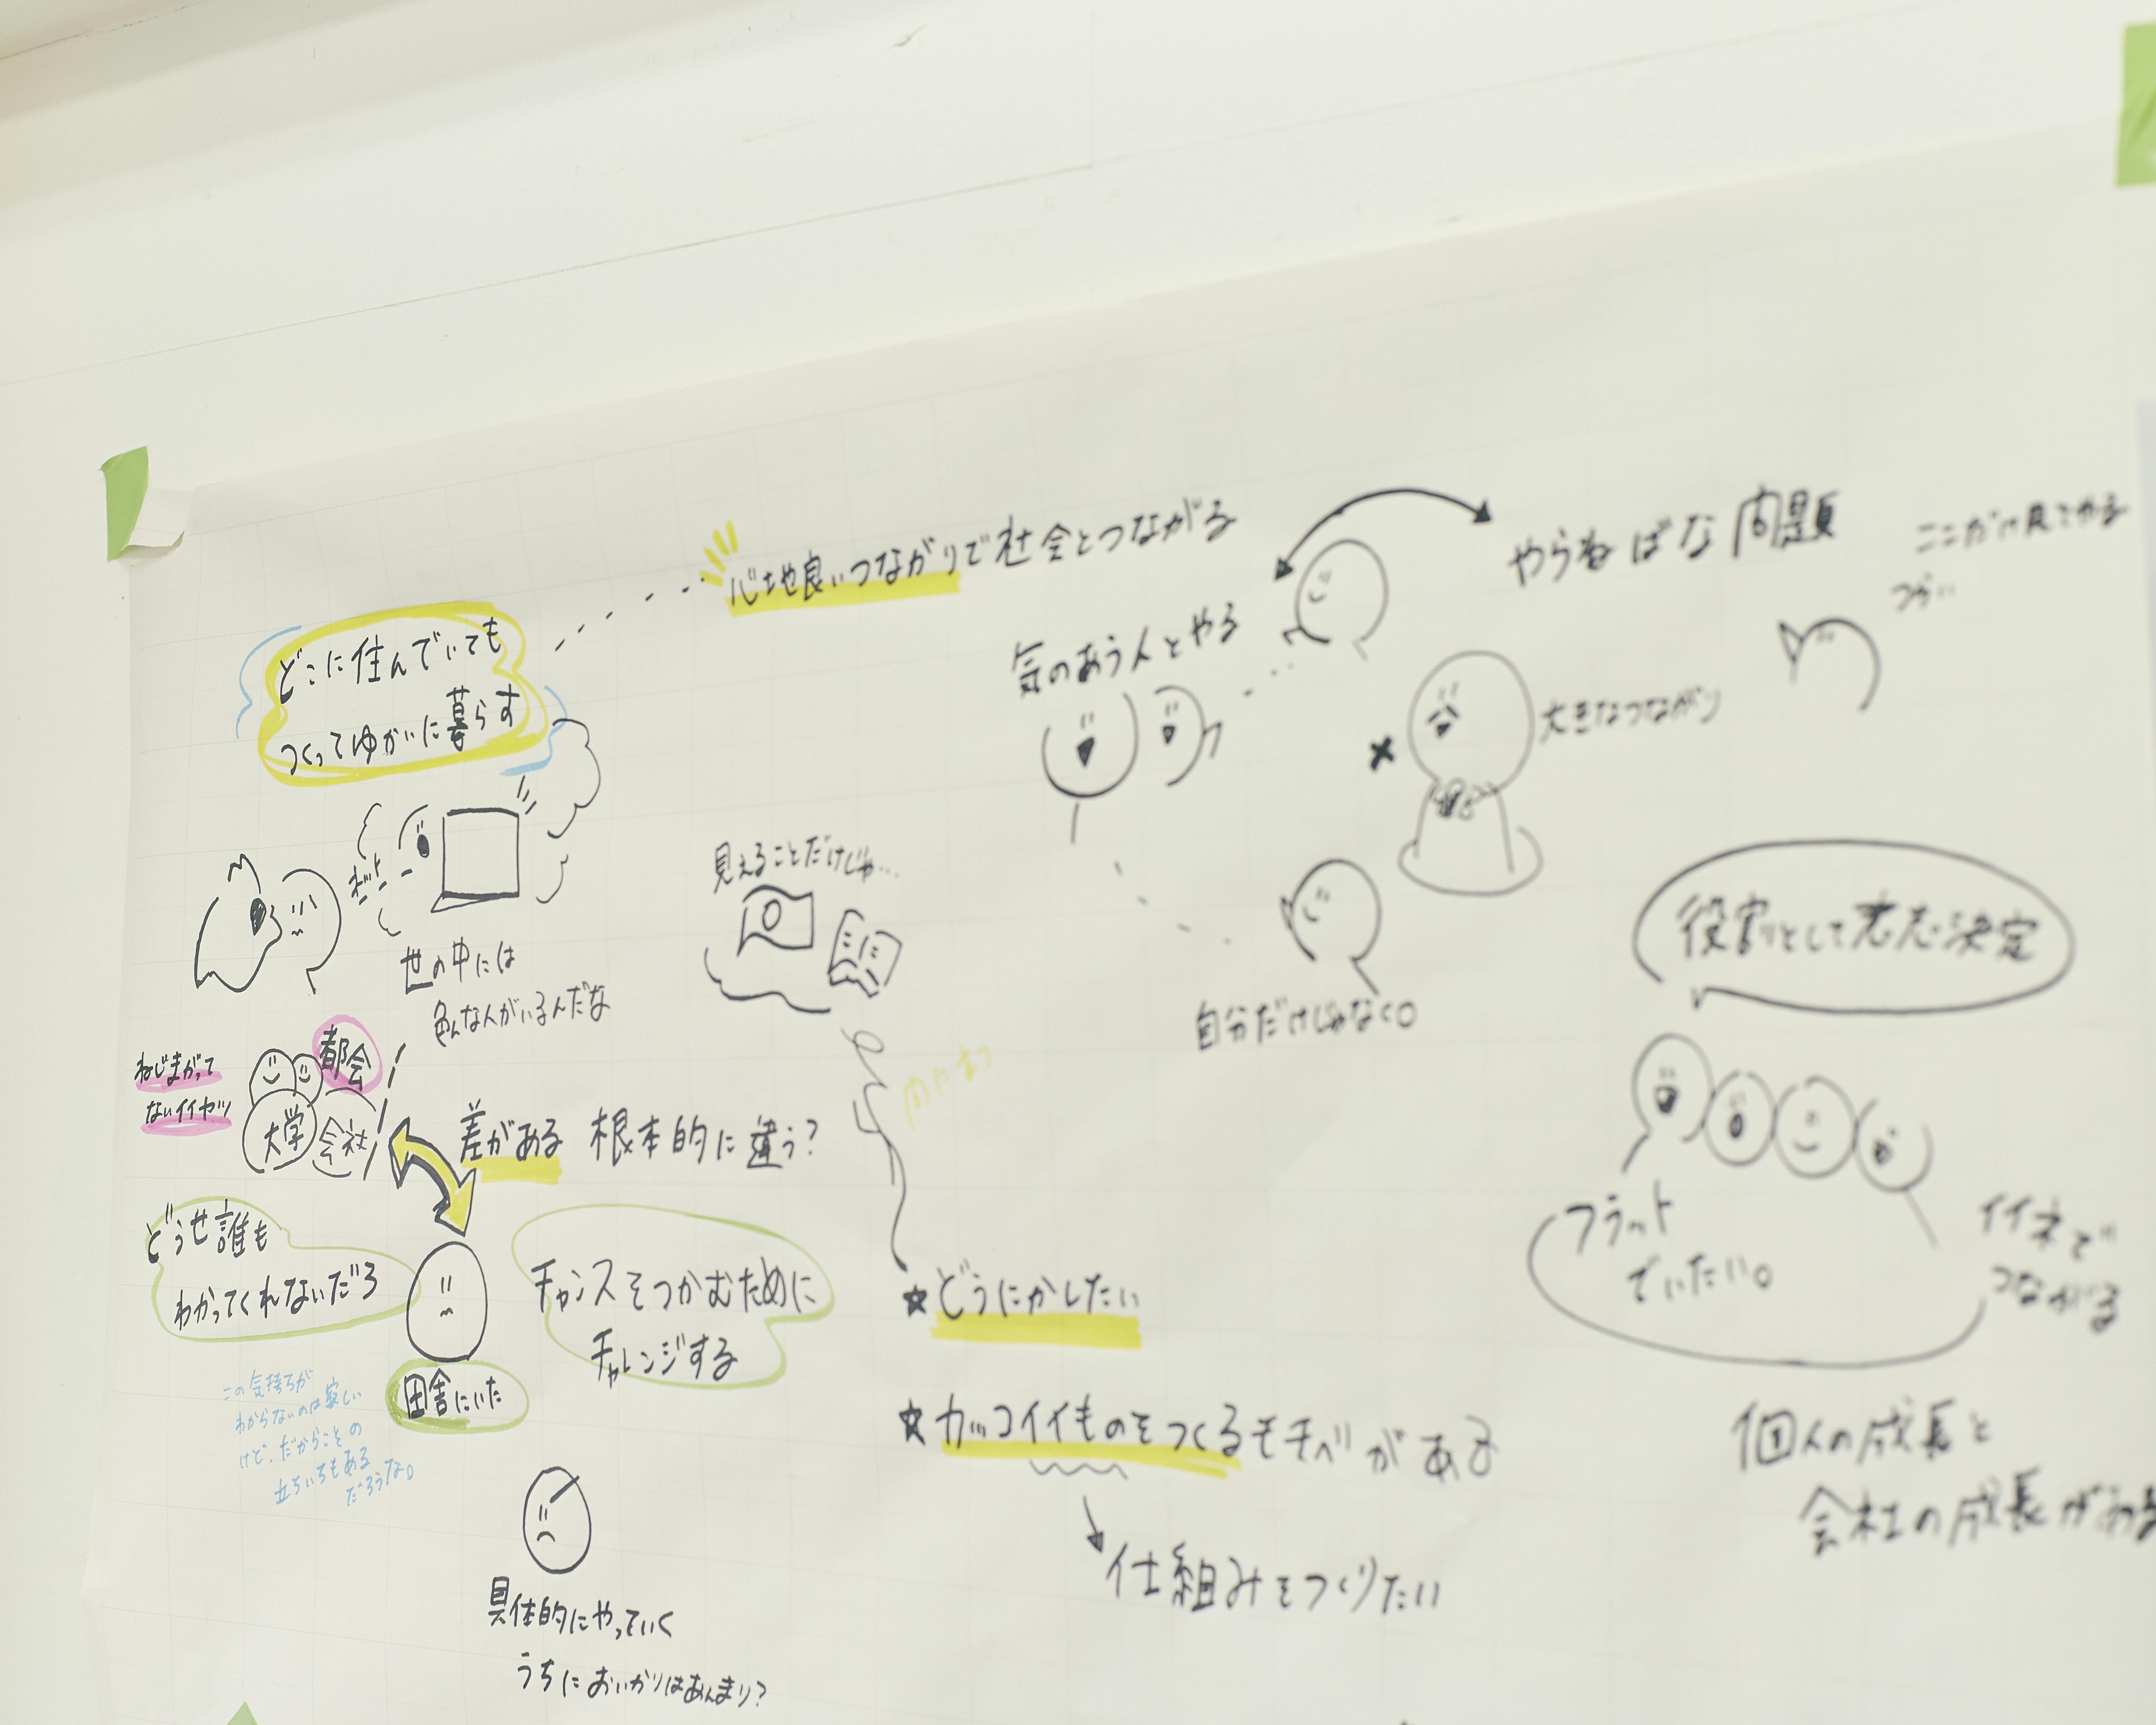 心地良いつながりで社会とつながる
どこに住んでいても
つくってゆかいに暮らす
ネット
世の中には
色んな人がいるんだな
ねじまがって
ないイイヤツ
都会
大学
会社
差がある 根本的に違う?
どうせ誰も
わかってくれないだろ
チャンスをつかむために
チャレンジする
田舎にいた
この気持ちが
わからないのは寂しい
けど、だからことの
立ちいちもある
だろうな。
具体的にやっていく
うちにおいかりはあんまり?
見えることだけじゃ…
★どうにかしたい
★カッコイイものをつくるモチベがある
仕組みをつくりたい
気のあう人とやる
やらねばな問題
ここだけ見てやる
つらい
大きなつながり
自分だけじゃなく。
役割として意志決定
フラット
でいたい。
イイネで
つながる
個人の成長と
会社の成長がある